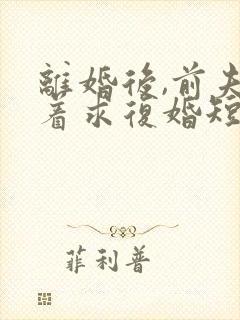 離婚後,前夫
着求復婚短
菲利普